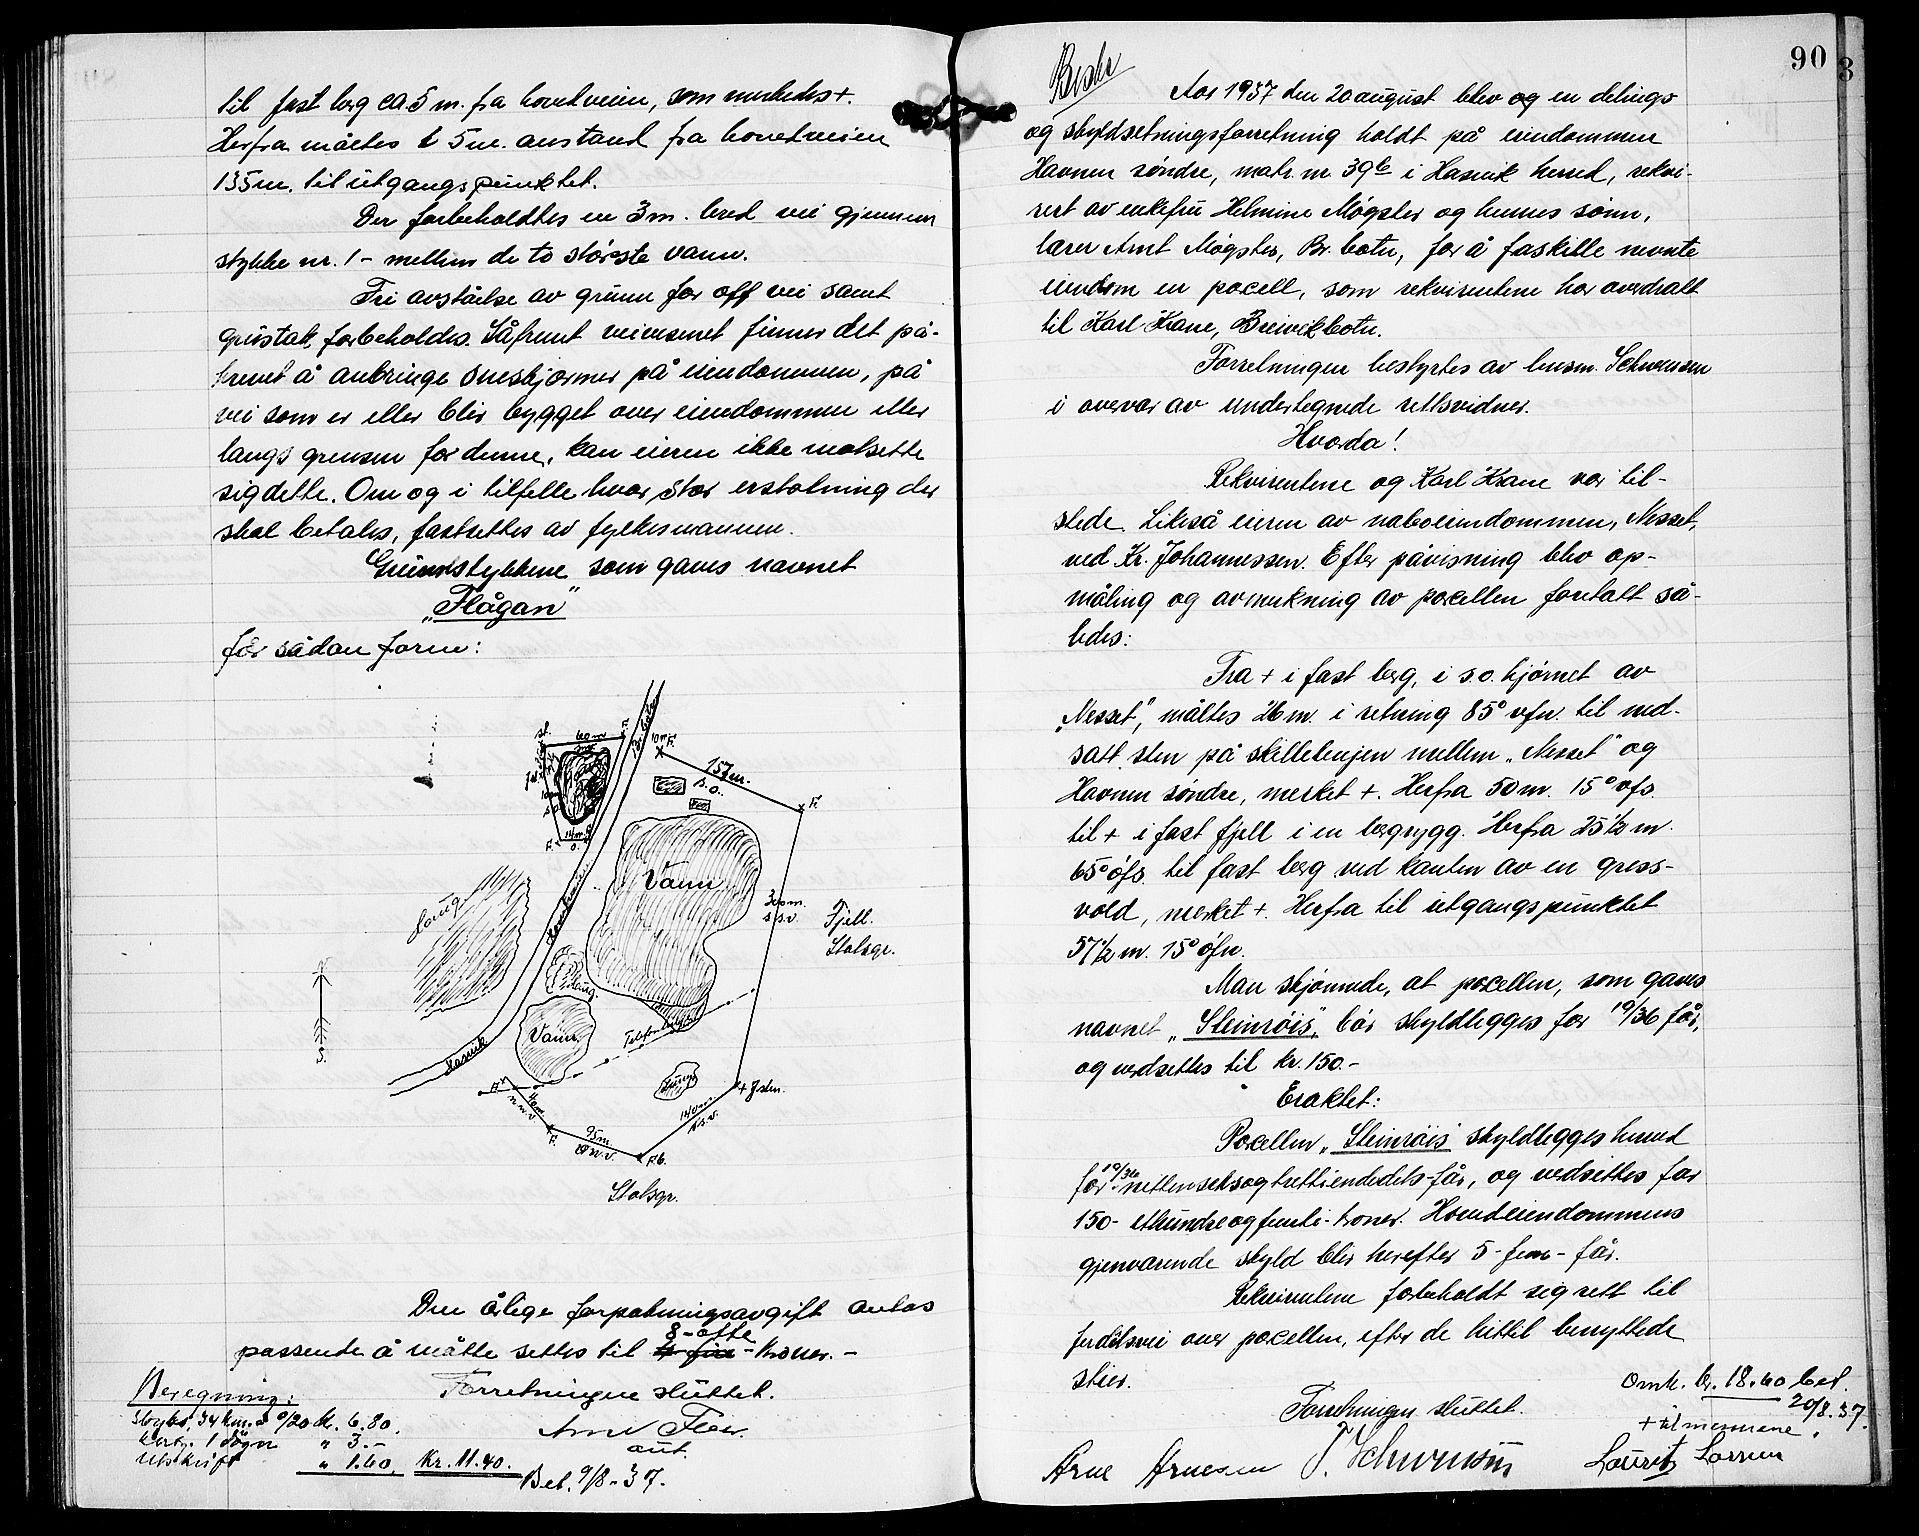 til fast berg ca 5 m. fra hovedveien, som merkedes +.
Herfra måltes 5 m. avstand fra hovedveien
135 m. til utgangspunktet.
Der forbeholdtes en 3 m. bred vei gjennem
stykke nr. 1 - mellem de to største vann.
Fri avståelse av grunn for off vei samt
grustak forbeholdes. Såfremt veivesenet finner det på-
krevet å anbringe sneskjærmer på eiendommen, på
vei som er eller blir bygget over eiendommen eller
langs grensen for denne, kan eieren ikke motsette
sig dette. Om og i tilfelle hvor stor erstatning der
skal betales, fastsettes av fylkesmannen.
Grunnstykkene som gaves navnet
„Flågan"
får sådan form:
60 m
F.
10 m F.
157 m.
s.o.
F.
14 m.
F.
o.
Vann
300 m.
s.s.v.
Fjell.
Statsgr.
Haug
Haug.
Vann
Telefonlinje
Hasvik
S.
F.
n.n.v.
F.
95 m.
140 m.
v.s.v.
+ J. sten.
F.b.
Statsgr.
Den årlige forpaktningsavgift antas
8 - otte
passende å måtte settes til 4 - fire - kroner. -
Forretningen sluttet.
Beregning:
Skyss, 34 km. à 0/20 kr. 6.80.
Kostg. 1 døgn " 3.-
Utskrift " 1.60. Kr. 11.40.
aut.
Bet. 9/8 - 37.
90
Beskr
Aar 1937 den 20 august blev og en delings
og skyldsetningsforretning holdt på eiendommen
Havnen søndre, matr. nr. 39 b i Hasvik herred, rekvi-
rert av enkefru Helmine Møgster og hennes sønn,
lærer Arnt Møgster, Br. botn, for å fraskille nevnte
eiendom en parcell, som rekvirentene har overdratt
til Karl Krane, Breivikbotn.
Forretningen bestyrtes av lensm. Schwensen
i overvær av undertegnede rettsvidner.
Hvorda!
Rekvirentene og Karl Krane var til-
stede. Likeså eieren av naboeiendommen, Nesset,
ved Kr. Johannessen. Efter påvisning blev op-
måling og avmerkning av parcellen foretatt så-
ledes:
Fra + i fast berg, i s.o. hjørnet av
„Nesset", måltes 26 m. i retning 85° vfn. til ned-
satt sten på skillelinjen mellem „Nesset" og
Havnen søndre, merket +. Herfra 50 m. 15° vfs.
til + i fast fjell i en bergrygg. Herfra 25 1/2 m.
65° øfs. til fast berg ved kanten av en gress-
vold, merket +. Herfra til utgangspunktet
57 1/2 m. 15° øfn.
Man skjønnede, at parcellen, som gaves
navnet „Steinrøis", bør skyldlegges for 19/36 får,
og verdsettes til kr. 150.-
Eraktet:
Parcellen „Steinrøis" skyldlegges herved
for 19/36 - nittenseksogtrettiendedels - får, og verdsettes for
150 - etthundreogfemti - kroner. Hovedeiendommens
gjenværende skyld blir herefter 5 - fem - får.
Rekvirentene forbeholdt sig rett til
ferdselsvei over parcellen, efter de hittil benyttede
stier.
Omk. kr. 18.60 bet.
20/8. 37.
Forretningen sluttet.
+ til mennene.
Arne Arnesen J. Schwensen Lauritz Larsen